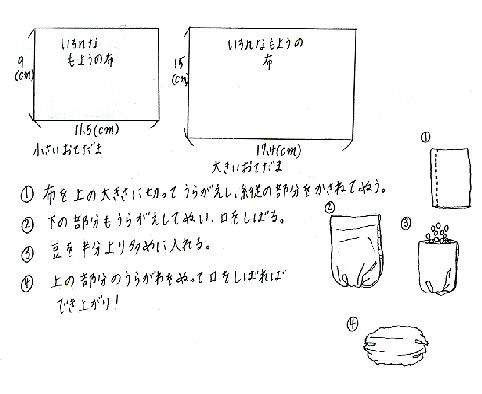 いろんな
もようの布
9
(cm)
11.5(cm)
小さいおてだま
いろんなもようの
布
15
(cm)
17.4(cm)
大きいおてだま
① 布を上の大きさに切ってうらがえし、縦の部分をかさねてぬう。
② 下の部分もうらがえしてぬい、口をしばる。
③ 豆を半分より多めに入れる。
④ 上の部分のうらがわをぬって口をしばれば
でき上がり!
①
②
③
④